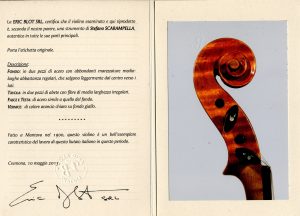 La ERIC BLOT SRL, certifica che il violino esaminato e qui riprodotto
è, secondo il nostro parere, uno strumento di Stefano SCARAMPELLA,
autentico in tutte le sue parti principali.
Porta l'etichetta originale.
Descrizione:
FONDO: in due pezzi di acero con abbondanti marezzature medio-
larghe abbastanza regolari, che salgono leggermente dal centro verso i
lati.
TAVOLA: in due pezzi di abete con fibra di media larghezza irregolari.
FASCE E TESTA: di acero simile a quello del fondo.
VERNICE: di colore arancio chiaro su fondo giallo.
Fatto a Mantova nel 1900, questo violino è un bell'esempio
caratteristico del lavoro di questo liutaio italiano in questo periodo.
Cremona, 10 maggio
Eric Blot SRL